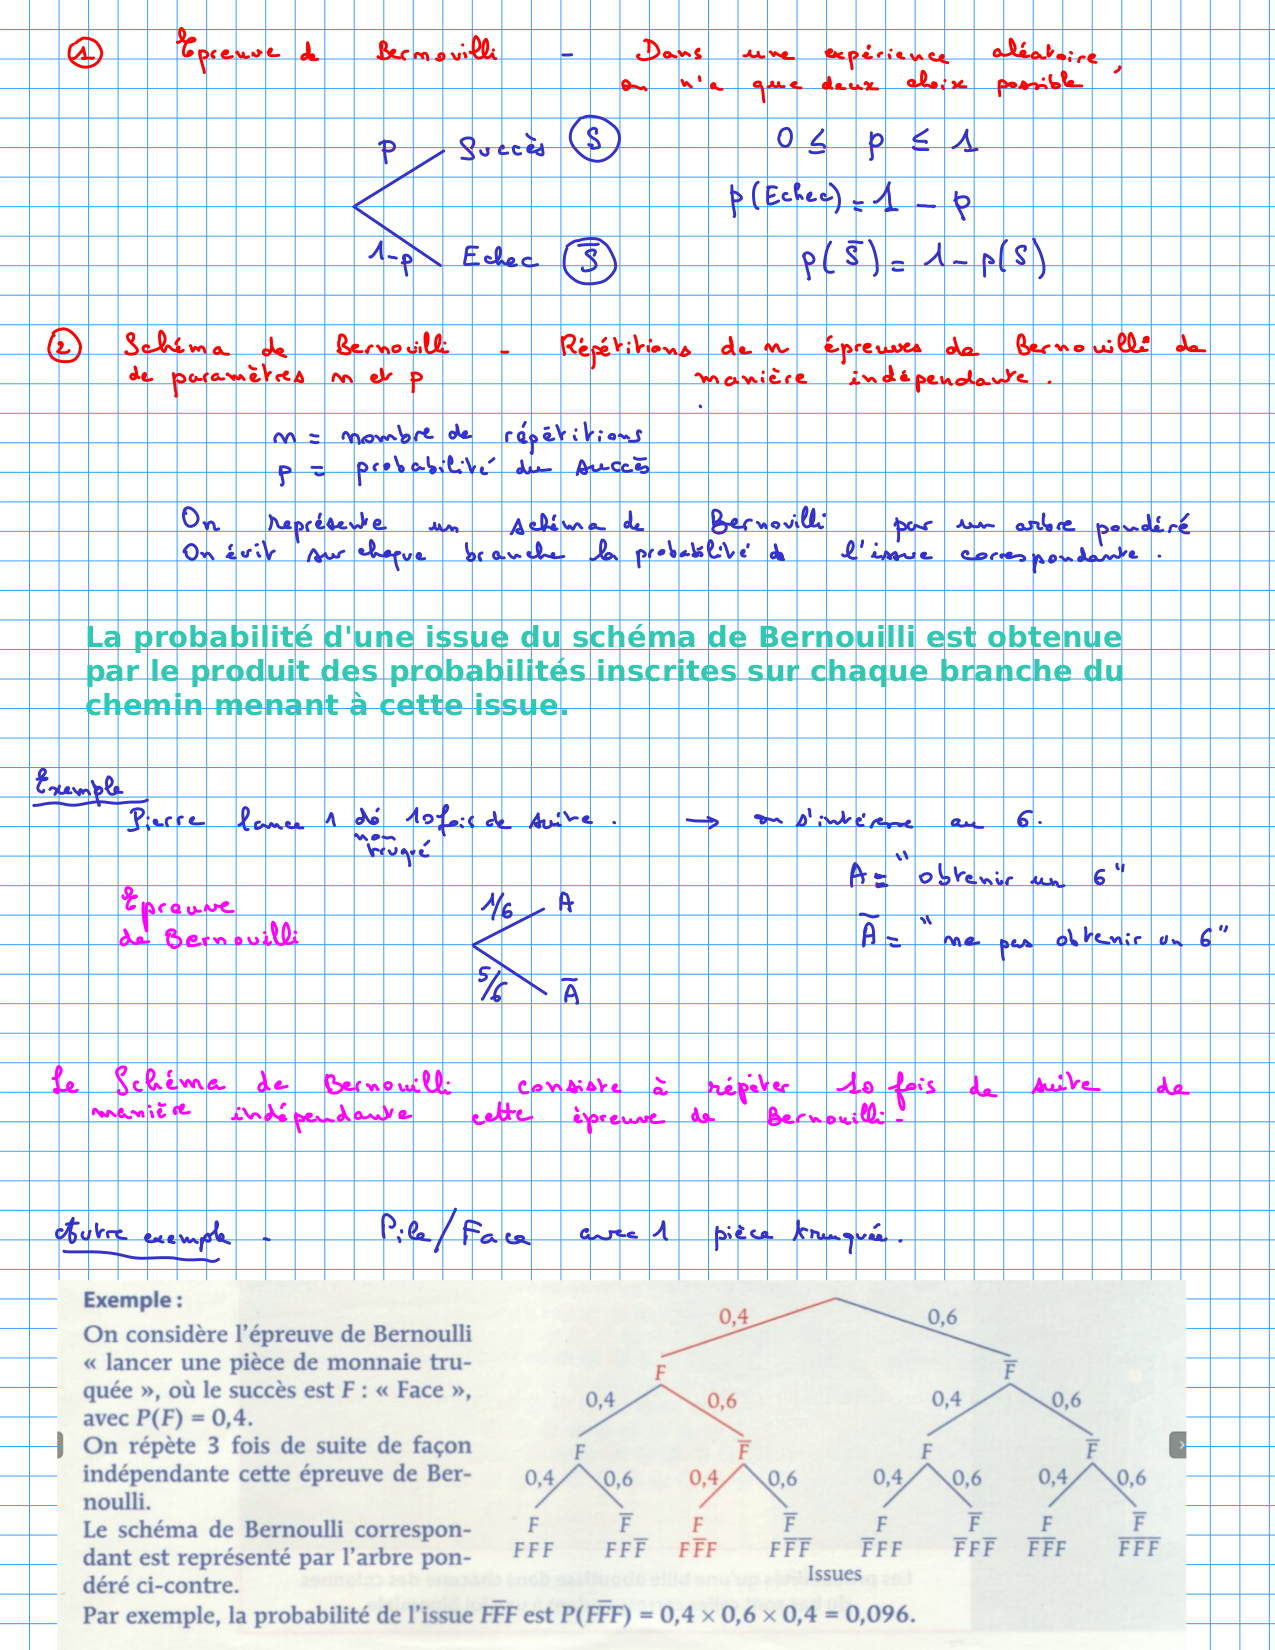 1 Epreuve de Bernouilli - Dans une expérience aléatoire,
on n'a que deux choix possible
p Succès S 0 ≤ p ≤ 1
p(Echec) = 1 - p
1-p Echec S̅ p(S̅) = 1 - p(S)
2 Schéma de Bernouilli - Répétitions de n épreuves de Bernouilli de
de paramètres n et p manière indépendante.
n = nombre de répétitions
p = probabilité du succès
On représente un schéma de Bernouilli par un arbre pondéré
On écrit sur chaque branche la probabilité de l'issue correspondante.
La probabilité d'une issue du schéma de Bernouilli est obtenue
par le produit des probabilités inscrites sur chaque branche du
chemin menant à cette issue.
Exemple
Pierre lance 1 dé 10 fois de suite. → on s'intéresse au 6.
non
truqué
A = "obtenir un 6"
Epreuve 1/6 A
de Bernouilli A̅ = "ne pas obtenir un 6"
5/6 A̅
Le Schéma de Bernouilli consiste à répéter 10 fois de suite de
manière indépendante cette épreuve de Bernouilli-
Autre exemple - Pile/Face avec 1 pièce trunquée.
Exemple :
On considère l'épreuve de Bernoulli
« lancer une pièce de monnaie tru-
quée », où le succès est F : « Face »,
avec P(F) = 0,4.
On répète 3 fois de suite de façon
indépendante cette épreuve de Ber-
noulli.
Le schéma de Bernoulli correspon-
dant est représenté par l'arbre pon-
déré ci-contre.
0,4 0,6
F F̅
0,4 0,6 0,4 0,6
F F̅ F F̅
0,4 0,6 0,4 0,6 0,4 0,6 0,4 0,6
F F̅ F F̅ F F̅ F F̅
FFF FFF̅ FF̅F FF̅F̅ F̅FF F̅FF̅ F̅F̅F F̅F̅F̅
Issues
Par exemple, la probabilité de l'issue FF̅F est P(FF̅F) = 0,4 × 0,6 × 0,4 = 0,096.